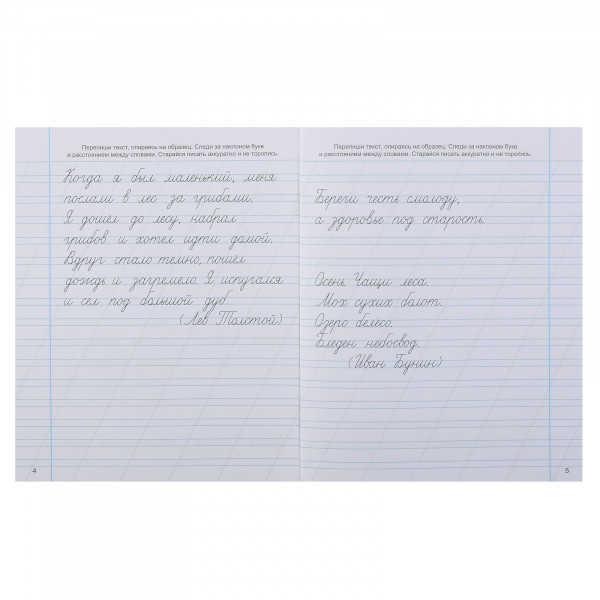 Перепиши текст, опираясь на образец. Следи за наклоном букв
и расстоянием между словами. Старайся писать аккуратно и не торопись.
Когда я был маленький, меня
послали в лес за грибами.
Я дошёл до лесу, набрал
грибов и хотел идти домой.
Вдруг стало темно, пошёл
дождь и загремело. Я испугался
и сел под большой дуб.
(Лев Толстой)
4
Перепиши текст, опираясь на образец. Следи за наклоном букв
и расстоянием между словами. Старайся писать аккуратно и не торопись.
Береги честь смолоду,
а здоровье под старость.
Осень. Чащи леса.
Мох сухих болот.
Озеро белесо.
Бледен небосвод.
(Иван Бунин)
5